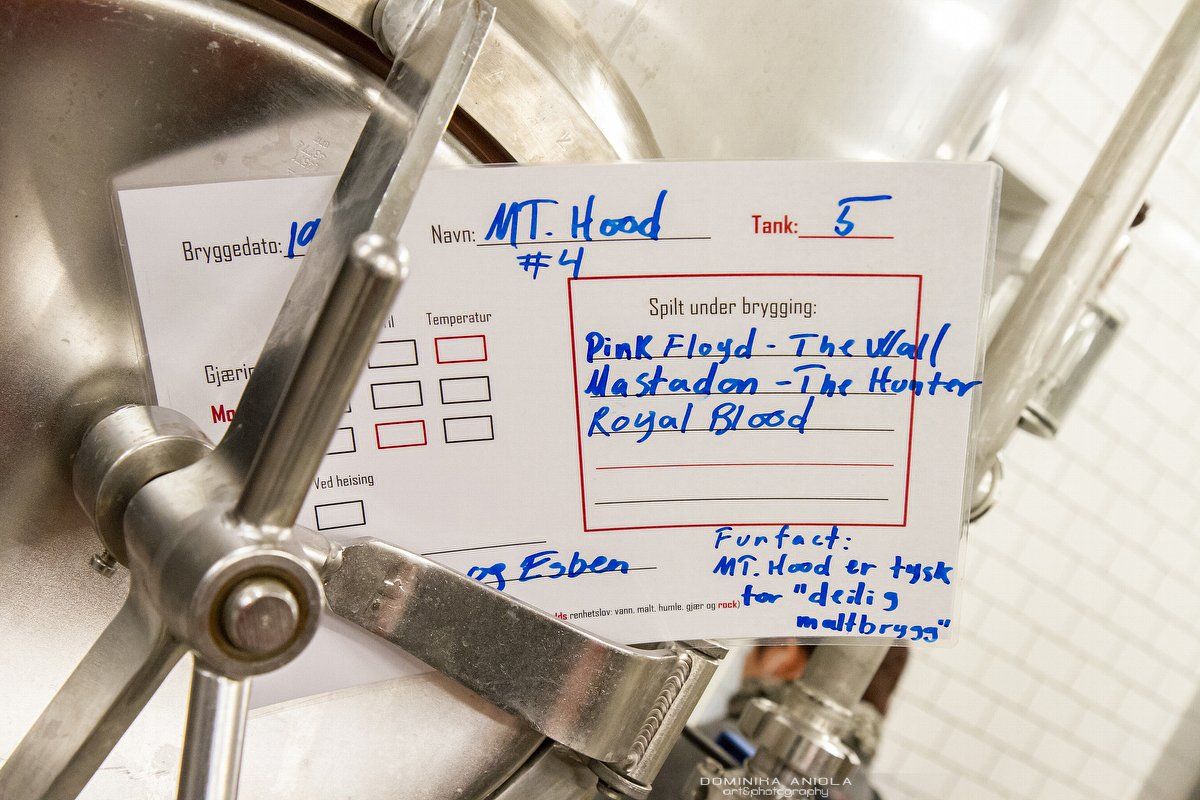 Bryggedato: 10
Navn: MT. Hood
#4
Tank: 5
Temperatur
Spilt under brygging:
Pink Floyd - The Wall
Mastadon - The Hunter
Royal Blood
Ved heising
og Esben
renhetslov: vann. malt. humle. gjær og rock)
Funfact:
MT. Hood er tysk
for "deilig
maltbrygg"
DOMINIKA ANIOLA
art&photography